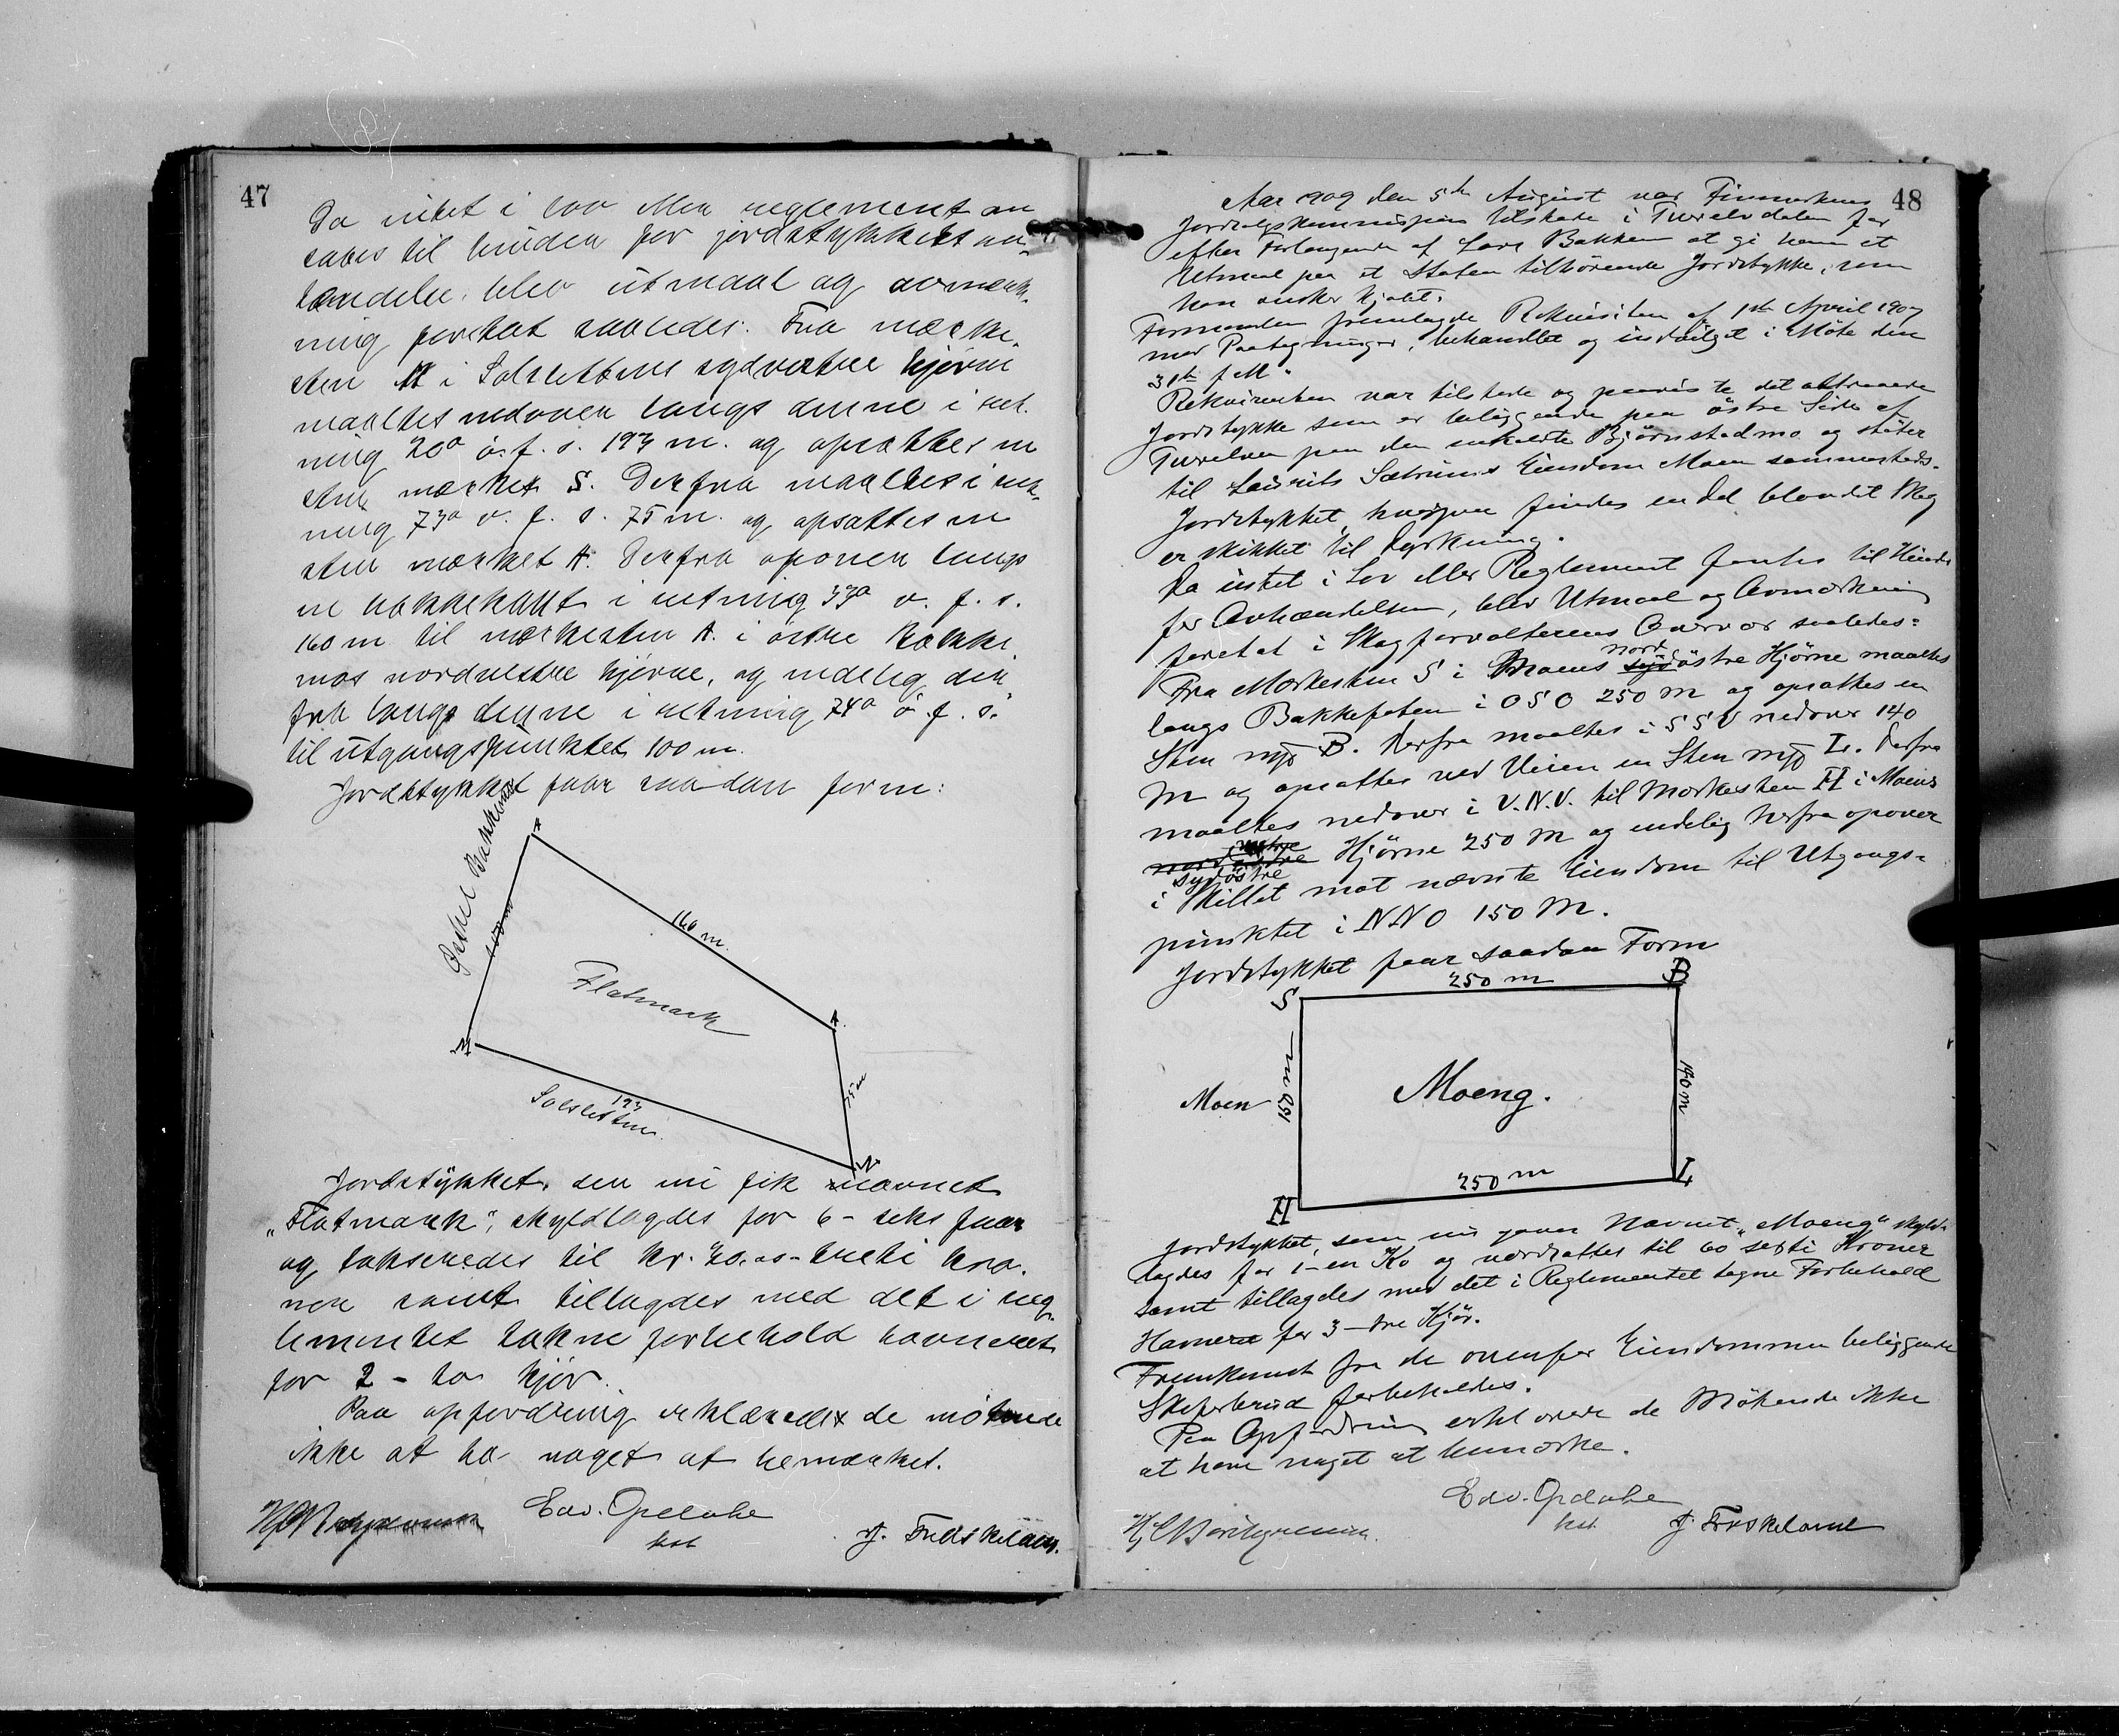 47
Da intet i lov eller reglement an
saaes til hinder for jordstykkets av-
hændelse, blev utmaal og avmerk-
ning foretat saaledes: Fra merke-
sten N i Solslettens sydvestre hjørne
maaltes nedover langs denne i ret-
ning 20° ö. f. s. 193 m. og opsattes en
sten merket S. Derfra maaltes i ret-
ning 73° v. f. s. 75 m. og opsattes en
sten mærket A. Derfra opover langs
en bakkekant i retning 33° v. f. s.
160 m til merkesten A. i östre Bakke
mos nordvestre hjörne, og endelig der
fra langs denne i retning 74° ö. f. s.
til utgangspunktet 100 m.
Jordstykket faar saadan form:
A
Østre Bakkemo
100 m
160 m.
Flatmark
A.
N
75 m
193
Solsletten
Jordstykket, som nu fik navnet
„Flatmark", skyldlagdes for 6 - seks faar
og takseredes til kr. 20.00 - tyve kro-
ner samt tillagdes med det i reg-
lementet tagne forbehold havneret
for 2 - to kjör.
Paa opfordring erklærede de mötende
ikke at ha noget at bemærke.
Edv. Opdahl
kst
J. Fuskeland.
48
Aar 1909 den 5te August var Finmarkens
Jordsalgskommission tilstede i Tverelvdalen for
efter Forlangende af Lars Bakken at gi ham et
Utmaal paa et Staten tilhörende Jordstykke, som
han ønsker kjøbt.
Formanden fremlagde Rekvisition af 1ste April 1907
med Paategninger, behandlet og indvilget i Möte den
31te f. M.
Rekvirenten var tilstede og paaviste det attraaede
Jordstykke som er beliggende paa östre Side af
Tverelven paa den saakaldte Bjørnstadmo og støter
til Laurits Sætrums Eiendom Moen sammesteds.
Jordstykket, hvorpaa findes en Del blandet Skog
er skikket til Dyrkning.
Da intet i Lov eller Reglement fantes til Hinder
for Avhændelsen, blev Utmaal og Avmerkning
foretat i Skogforvalterens Overvær saaledes:
Fra Merkesten S i Moens nordöstre Hjørne maaltes
langs Bakkefoten i OSO 250 m og opsattes en
Sten mrk B. Derfra maaltes i SSV nedover 140
m og opsattes ved Veien en Sten mrk L. Derfra
maaltes nedover i V.N.V. til Merkesten H i Moens
sydöstre Hjørne 250 m og endelig herfra opover
i Skillet mot nævnte Eiendom til Utgangs-
punktet i NNO 150 m.
Jordstykket faar saadan Form
S
250 m
B
Moen
150 m
Moeng.
140 m
H
250 m
L
Jordstykket, som nu gaves Navnet „Moeng" skyld-
lagdes for 1 - en Ko og værdsattes til 60 seksti Kroner
samt tillagdes med det i Reglementet tagne Forbehold
Havneret for 3 - tre Kjør.
Fremkomst fra de ovenfor Eiendommen beliggende
Skiferbrud forbeholdes.
Paa Opfordring erklærede de Mötende ikke
at have noget at bemærke.
Edv. Opdahl
kst
J. Fuskeland